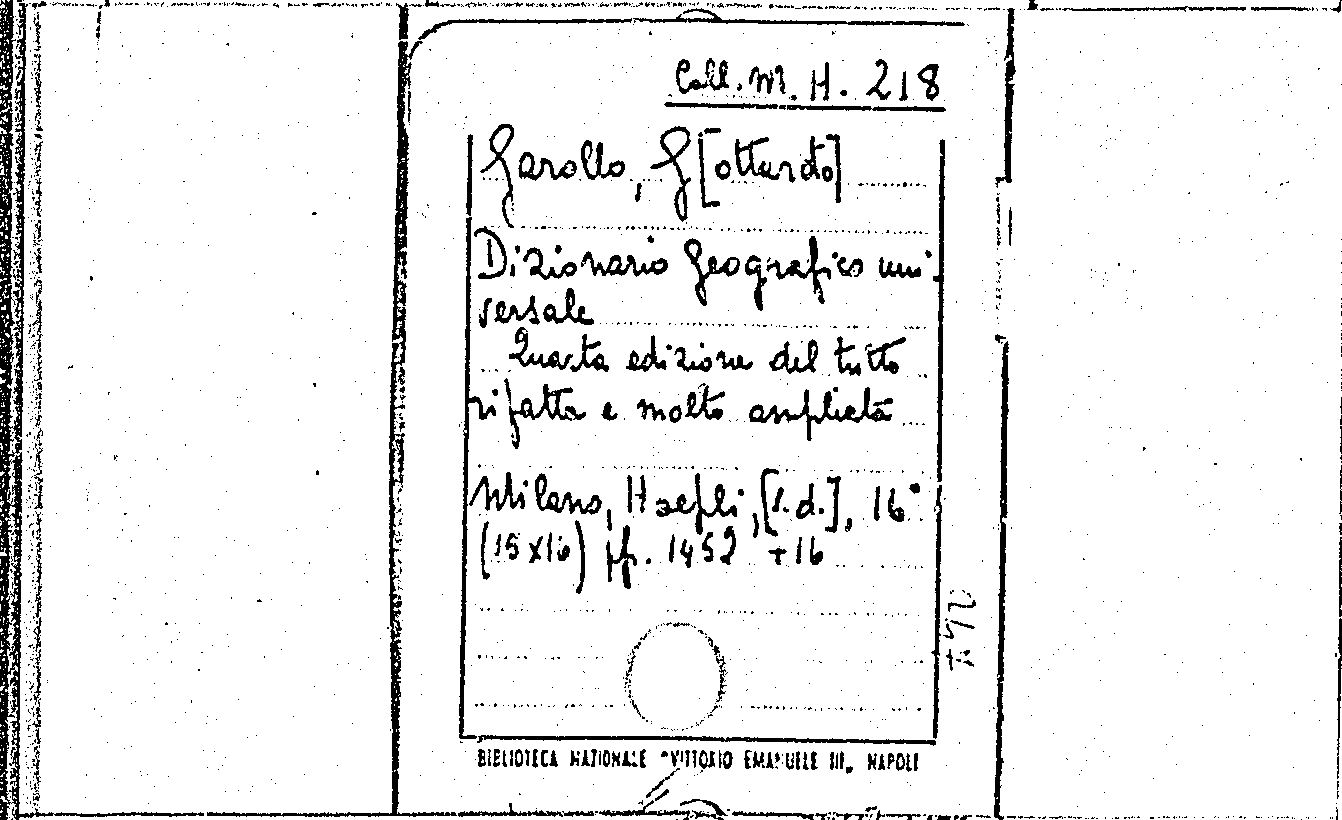 Coll. M. H. 218
Garollo, G[ottardo]
Dizionario Geografico uni-
versale
Quarta edizione del tutto
rifatta e molto ampliata
Milano, Hoepli, [s.d.], 16°
(15x16) pp. 1452 +16
BIBLIOTECA NAZIONALE "VITTORIO EMANUELE III„ NAPOLI